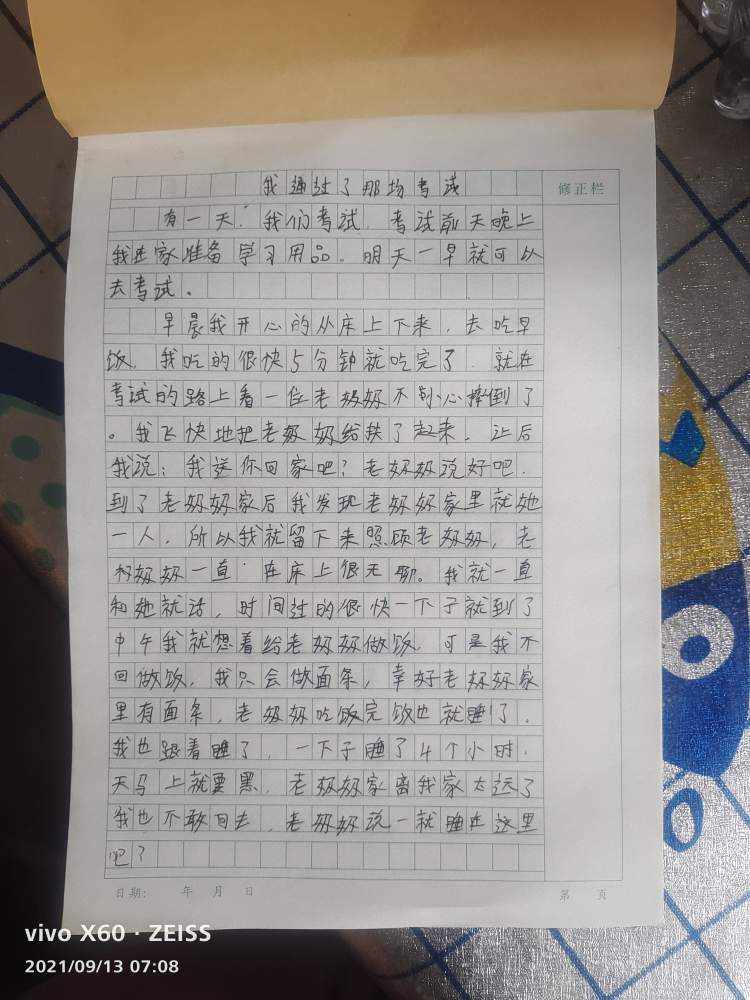 我通过了那场考试
修正栏
有一天.我们考试.考试前天晚上
我在家准备学习用品。明天一早就可以
去考试.
早晨我开心的从床上下来.去吃早
饭.我吃的很快5分钟就吃完了.就在
考试的路上看一位老奶奶不小心摔倒了
。我飞快地把老奶奶给扶了起来.让后
我说:我送你回家吧?老奶奶说好吧.
到了老奶奶家后我发现老奶奶家里就她
一人.所以我就留下来照顾老奶奶,老
奶奶一直在床上很无聊。我就一直
和她就话,时间过的很快一下子就到了
中午我就想着给老奶奶做饭.可是我不
回做饭.我只会做面条,幸好老奶奶家
里有面条,老奶奶吃饭完饭也就睡了.
我也跟着睡了,一下子睡了4个小时.
天马上就要黑.老奶奶家离我家太远了
我也不敢回去.老奶奶说一就睡在这里
吧?
日期: 年 月 日
第 页
vivo X60 · ZEISS
2021/09/13 07:08